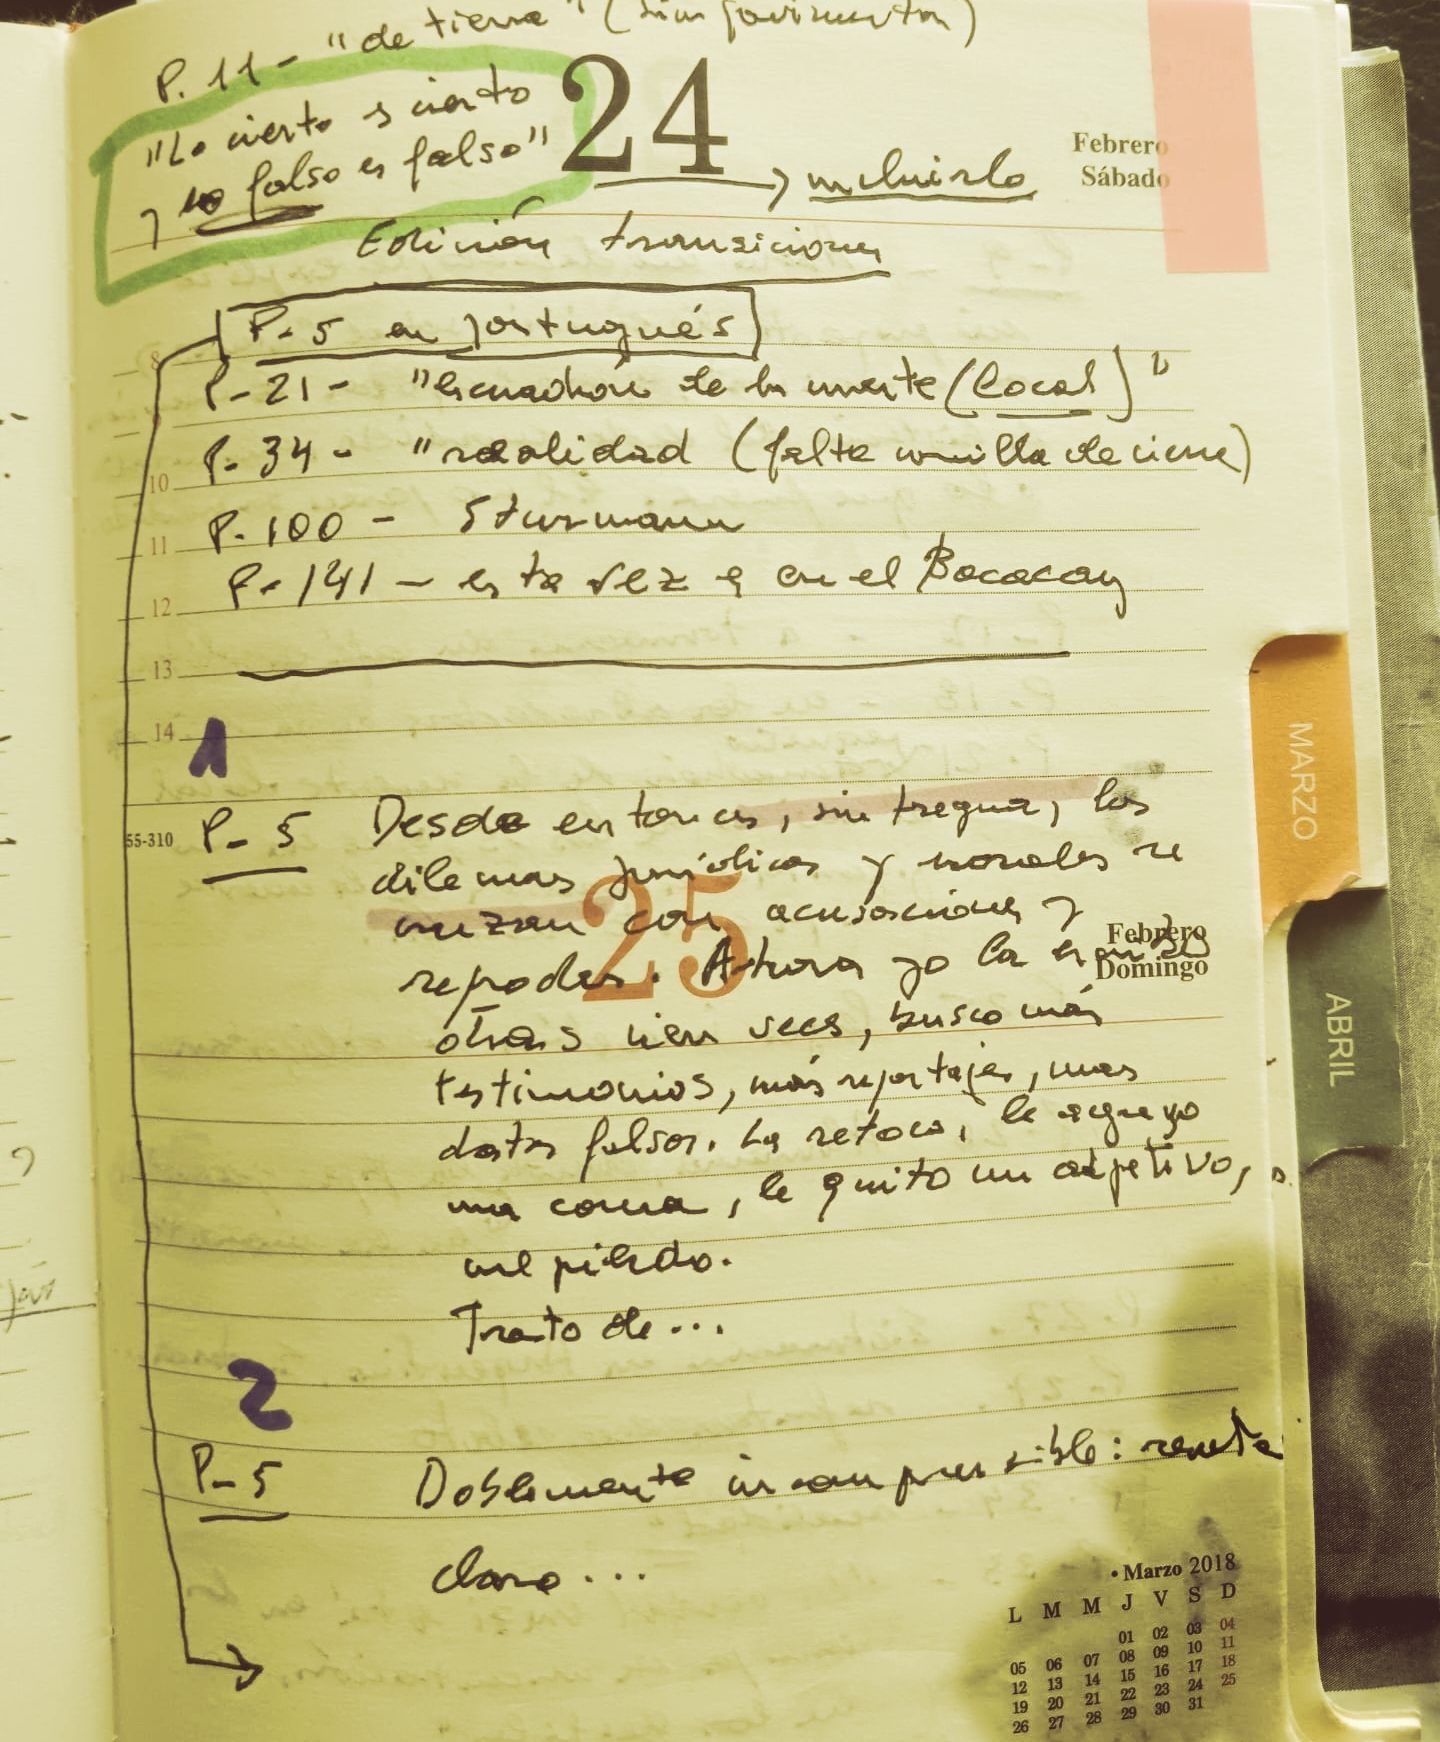 P. 11 - "de tierra" (sin pavimentar)
"Lo cierto es cierto
y lo falso es falso"
24
incluirlo
Febrero
Sábado
Edición transiciones
P-5 en portugués
8
P-21 - "escuadrón de la muerte (local)"
P. 34 - "realidad (falta comilla de cierre)
10
P. 100 - Sturmann
11
P. 141 - esta vez en el Bacacay
12
13
14
1
55-310
P-5 Desde entonces, sin tregua, los
dilemas jurídicos y morales se
cruzan con acusaciones y
25
Febrero
Domingo
reproches. Ahora yo la
otras cien veces, busco más
testimonios, más reportajes, mas
datos falsos. La retoco, le agrego
una coma, le quito un adjetivo, o
me pierdo.
Trato de...
2
P-5 Doblemente incomprensible:
claro...
• Marzo 2018
L M M J V S D
01 02 03 04
05 06 07 08 09 10 11
12 13 14 15 16 17 18
19 20 21 22 23 24 25
26 27 28 29 30 31
MARZO
ABRIL